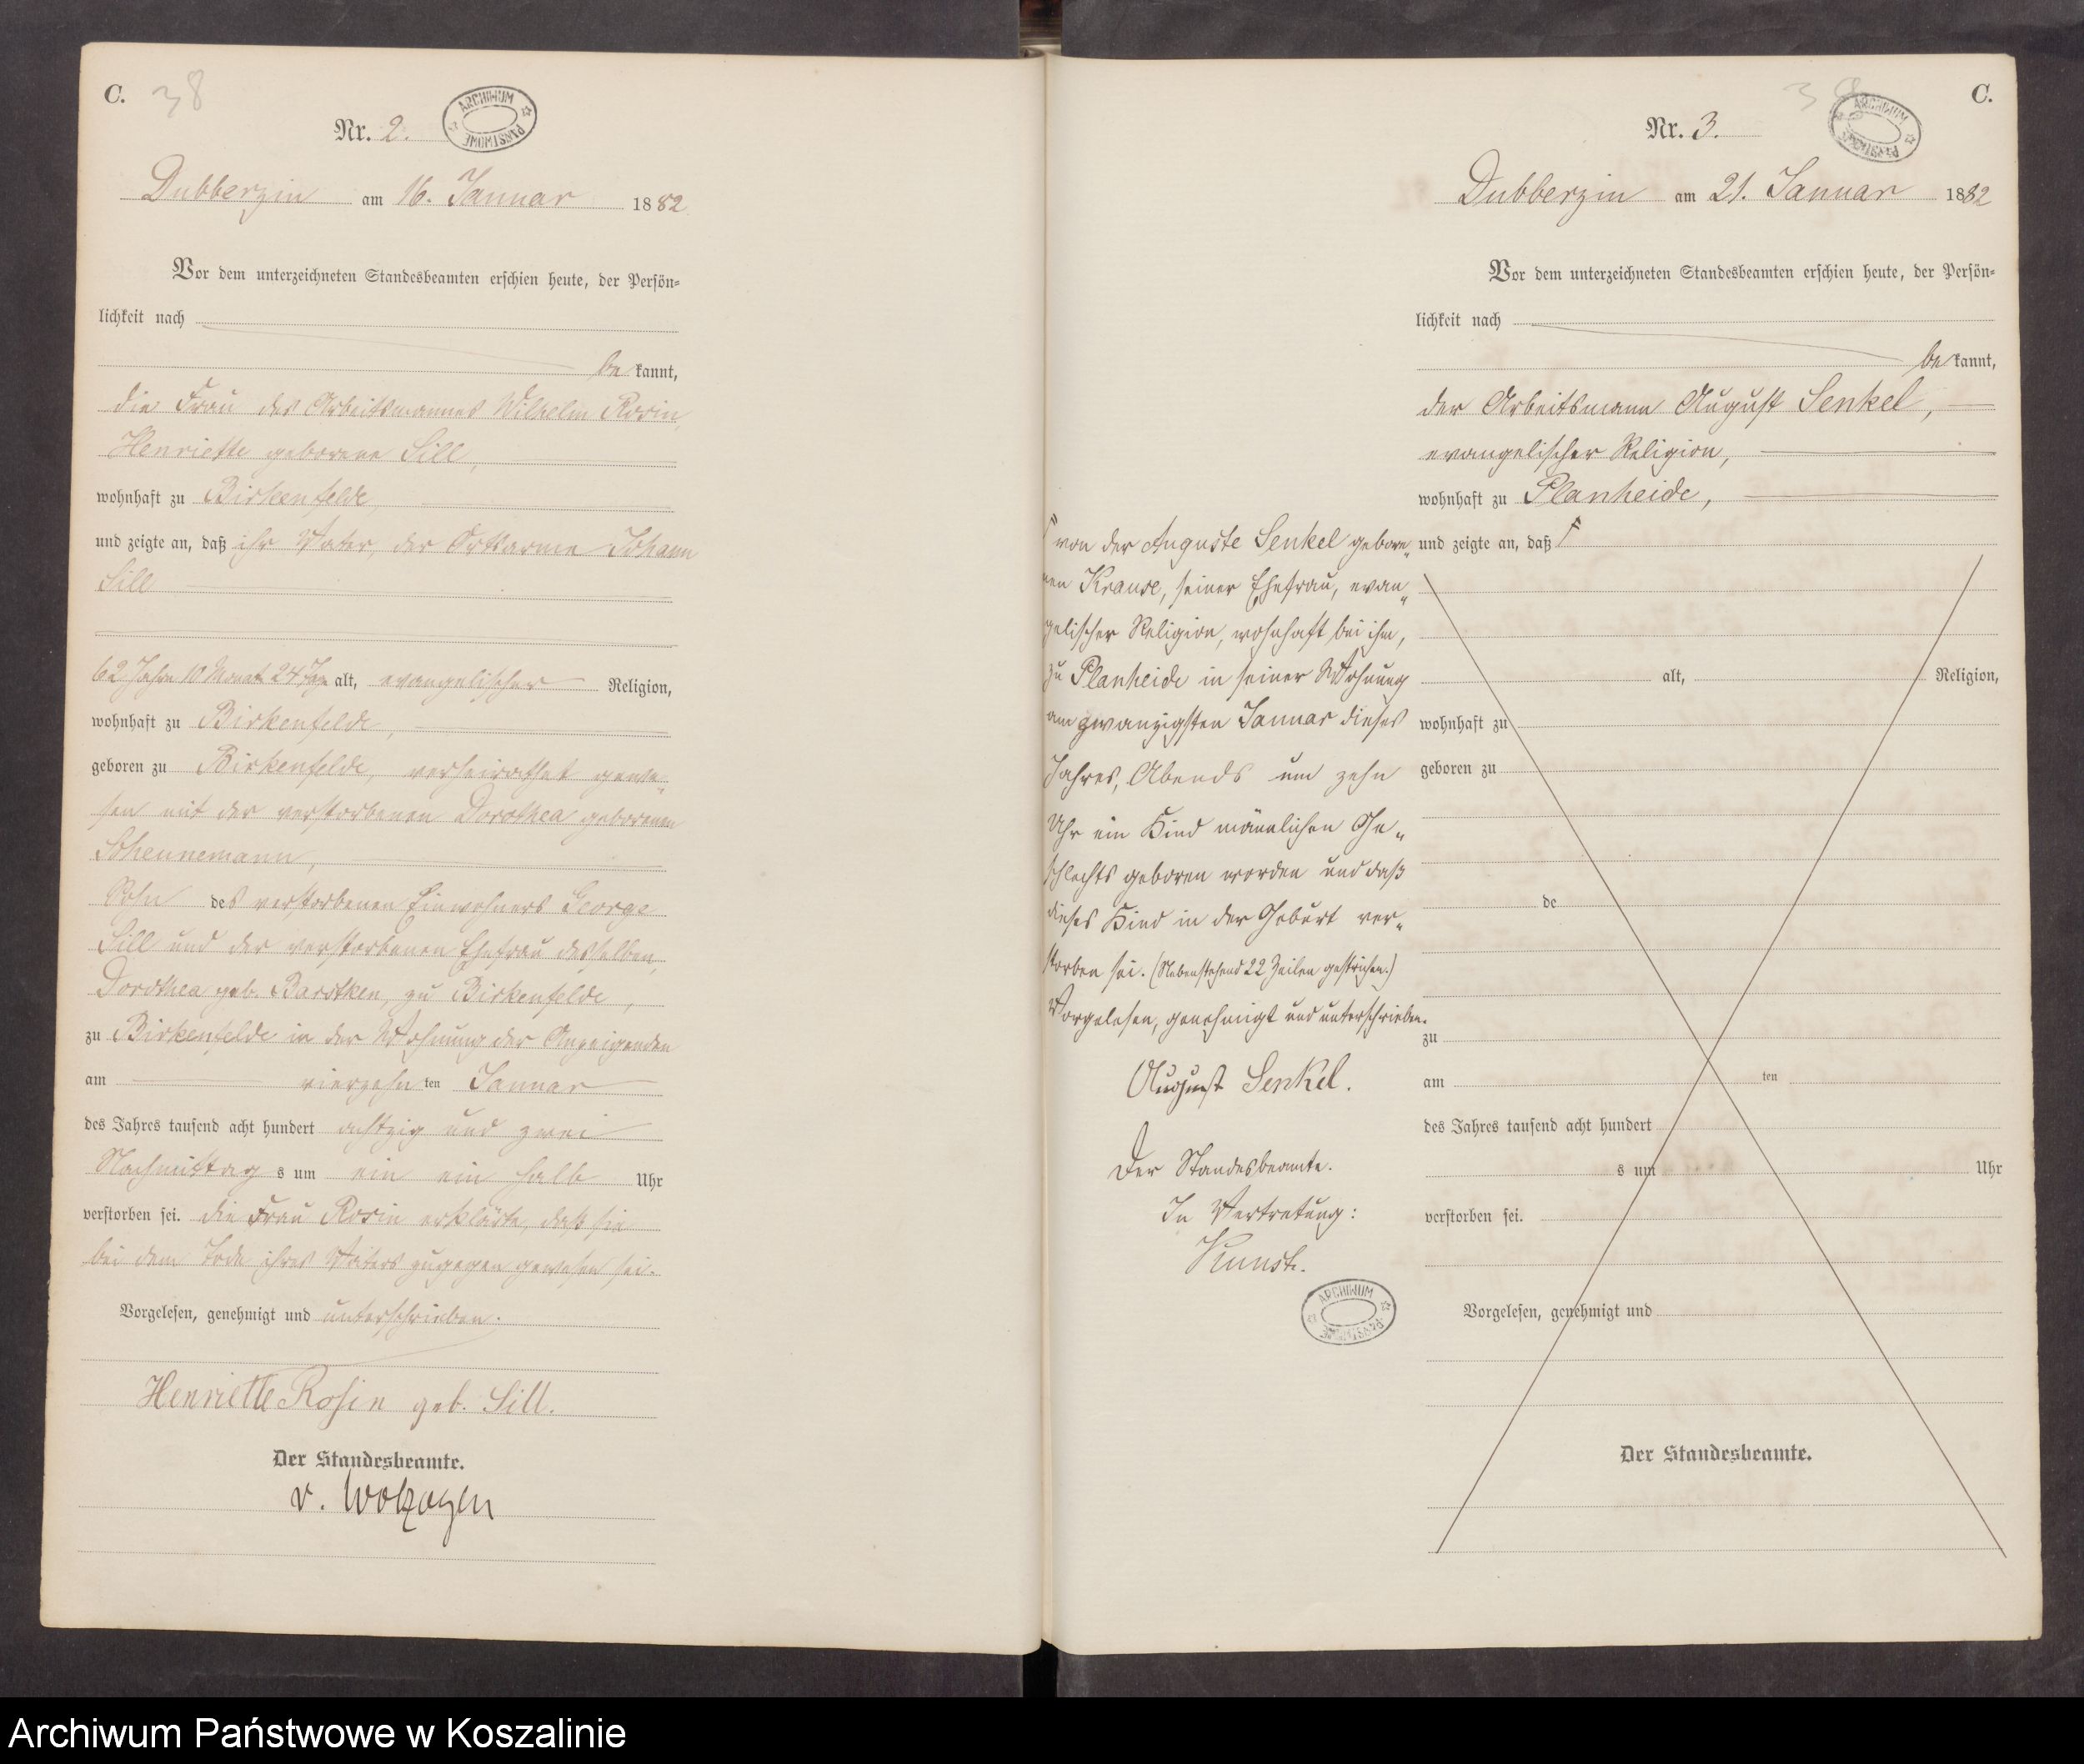 C. 38
Nr. 2.
ARCHIWUM PAŃSTWOWE
Dubberzin am 16. Januar 1882
Vor dem unterzeichneten Standesbeamten erschien heute, der Persön-
lichkeit nach
bekannt,
die Frau des Arbeitsmannes Wilhelm Rosin,
Henriette geborene Sill,
wohnhaft zu Birkenfelde,
und zeigte an, daß ihr Vater, der Ortsarme Johann
Sill
62 Jahre 10 Monat 24 Tage alt, evangelischer Religion,
wohnhaft zu Birkenfelde,
geboren zu Birkenfelde, verheirathet gewe-
sen mit der verstorbenen Dorothea geborenen
Schennemann,
Sohn des verstorbenen Einwohners George
Sill und der verstorbenen Ehefrau desselben,
Dorothea geb. Bardtken, zu Birkenfelde,
zu Birkenfelde in der Wohnung der Anzeigenden
am vierzehnten Januar
des Jahres tausend acht hundert achtzig und zwei
Nachmittags um ein ein halb Uhr
verstorben sei. die Frau Rosin erklärte, daß sie
bei dem Tode ihres Vaters zugegen gewesen sei.
Vorgelesen, genehmigt und unterschrieben.
Henriette Rosin geb. Sill.
Der Standesbeamte.
v. Wolzogen
C.
Nr. 3.
ARCHIWUM PAŃSTWOWE
Dubberzin am 21. Januar 1882
Vor dem unterzeichneten Standesbeamten erschien heute, der Persön-
lichkeit nach
bekannt,
der Arbeitsmann August Senkel,
evangelischer Religion,
wohnhaft zu Planheide,
und zeigte an, daß
von der Auguste Senkel gebore-
nen Krause, seiner Ehefrau, evan-
gelischer Religion, wohnhaft bei ihm,
zu Planheide in seiner Wohnung
am zwanzigsten Januar dieses
Jahres, Abends um zehn
Uhr ein Kind männlichen Ge-
schlechts geboren worden und daß
dieses Kind in der Geburt ver-
storben sei. (Nebenstehend 22 Zeilen gestrichen.)
Vorgelesen, genehmigt und unterschrieben.
August Senkel.
Der Standesbeamte.
In Vertretung:
Kunst.
ARCHIWUM PAŃSTWOWE
alt, Religion,
wohnhaft zu
geboren zu
de
zu
am ten
des Jahres tausend acht hundert
s um Uhr
verstorben sei.
Vorgelesen, genehmigt und
Der Standesbeamte.
Archiwum Państwowe w Koszalinie